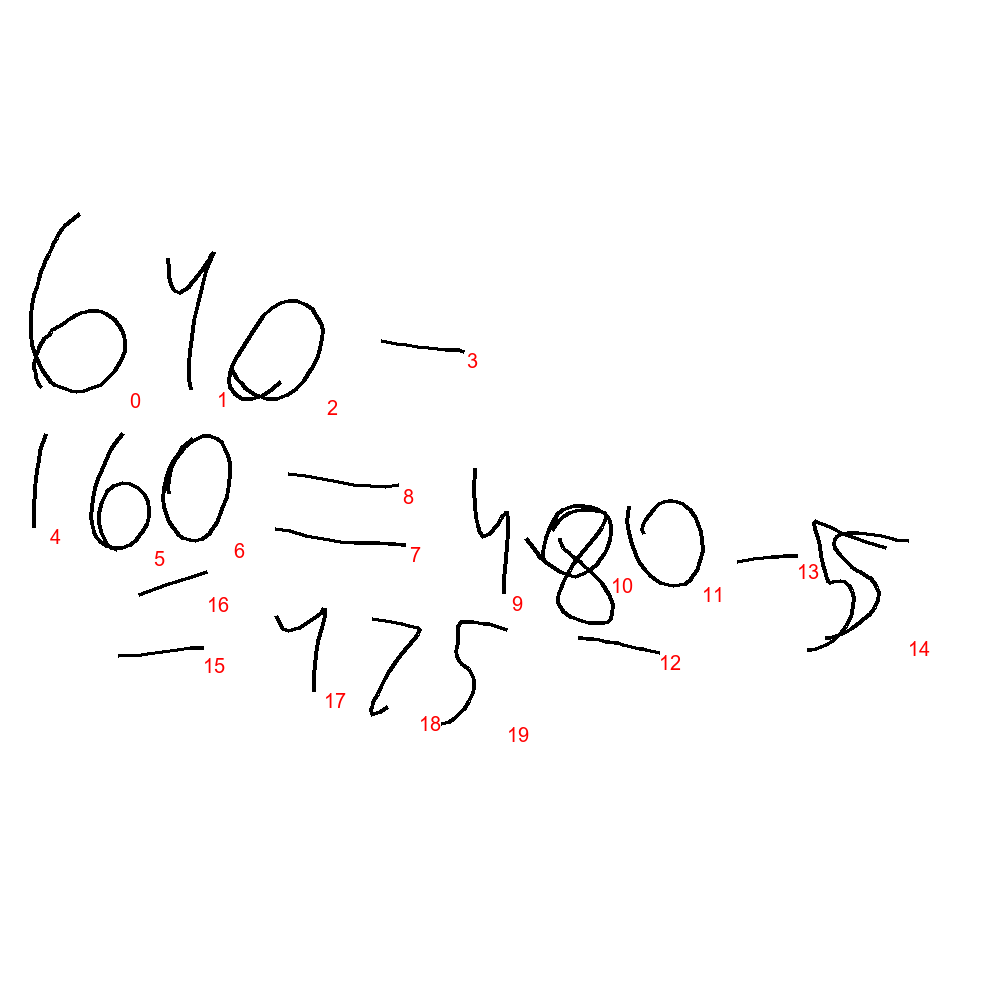 640 -
0 1 2 3
160 = 480 - 5
4 5 6 8 7 9 10 11 12 13 14
= 475
16 15 17 18 19